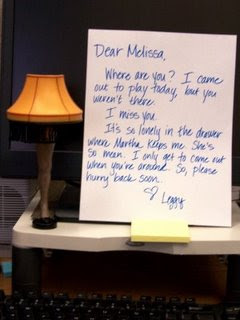 Dear Melissa,
Where are you? I came
out to play today, but you
weren't there.
I miss you.
It's so lonely in the drawer
where Martha keeps me. She's
so mean. I only get to come out
when you're around. So, please
hurry back soon.
♡ Leggy